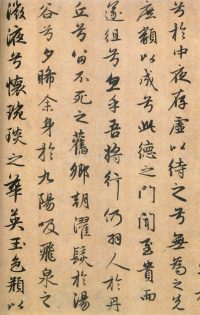 兮於中夜存虛以待之兮無為之先
庶類以成兮此德之門聞至貴而
遂徂兮忽乎吾將行仍羽人於丹
丘兮留不死之舊鄉朝濯髮於湯
谷兮夕晞余身於九陽吸飛泉之
微液兮懷琬琰之華英玉色頩以